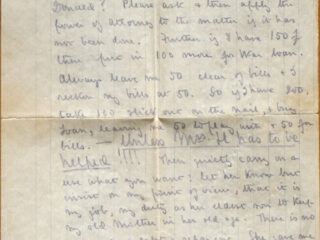 Donald? Please ask & then apply the
power of attorney to the matter if it has
not been done. Further if I have 150£
then put in 100 more for War Loan.
Always leave me 50 clear of bills & I
reckon my bills at 50. So if I have 200,
take 100 stick out on the nail, & buy
Loan, leaving me 50 to play with & 50 for
bills. — Unless Mrs. H has to be
helped !!!! Then quietly carry on &
use what you want: let her know but
insist on my point of view, that it is
my job, my duty as her eldest son to keep
my old mother in her old age. There is no
She gave me